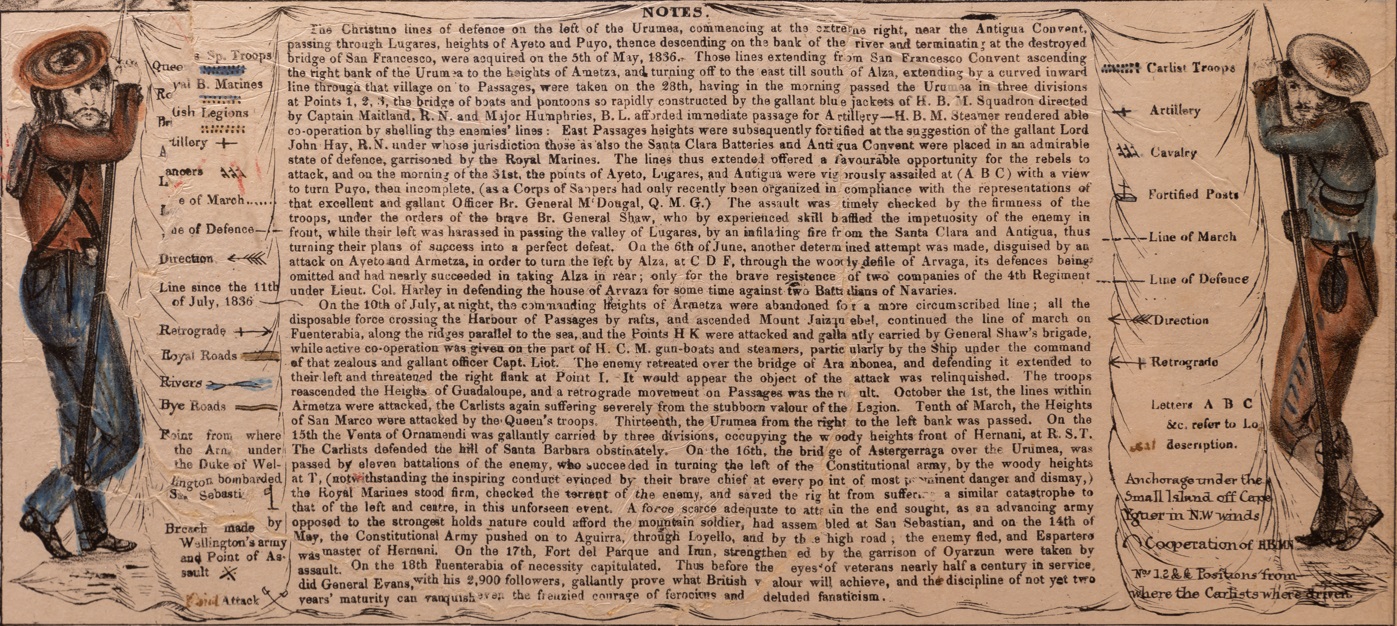 NOTES.
Sp. Troops
yal B. Marines
tish Legions
tillery
ancers
e of March......
ne of Defence
Direction
Line since the 11th
of July, 1836
Retrograde
Royal Roads
Rivers
Bye Roads
Point from where
the Arm under
the Duke of Wel-
lington bombarded
Sn. Sebasti
Breach made by
Wellington's army
and Point of As-
sault
Attack
The Christino lines of defence on the left of the Urumea, commencing at the extreme right, near the Antigua Convent,
passing through Lugares, heights of Ayeto and Puyo, thence descending on the bank of the river and terminating at the destroyed
bridge of San Francesco, were acquired on the 5th of May, 1836. Those lines extending from San Francesco Convent ascending
the right bank of the Urumea to the heights of Ametza, and turning off to the east till south of Alza, extending by a curved inward
line through that village on to Passages, were taken on the 28th, having in the morning passed the Urumea in three divisions
at Points 1, 2, 3, the bridge of boats and pontoons so rapidly constructed by the gallant blue jackets of H. B. M. Squadron directed
by Captain Maitland, R.N. and Major Humphries, B.L. afforded immediate passage for Artillery—H. B. M. Steamer rendered able
co-operation by shelling the enemies' lines : East Passages heights were subsequently fortified at the suggestion of the gallant Lord
John Hay, R.N. under whose jurisdiction those as also the Santa Clara Batteries and Antigua Convent were placed in an admirable
state of defence, garrisoned by the Royal Marines. The lines thus extended offered a favourable opportunity for the rebels to
attack, and on the morning of the 31st, the points of Ayeto, Lugares, and Antigua were vigorously assailed at (A B C) with a view
to turn Puyo, then incomplete, (as a Corps of Sappers had only recently been organized in compliance with the representations of
that excellent and gallant Officer Br. General M'Dougal, Q. M. G.) The assault was timely checked by the firmness of the
troops, under the orders of the brave Br. General Shaw, who by experienced skill baffled the impetuosity of the enemy in
front, while their left was harassed in passing the valley of Lugares, by an infilading fire from the Santa Clara and Antigua, thus
turning their plans of success into a perfect defeat. On the 6th of June, another determined attempt was made, disguised by an
attack on Ayeto and Armetza, in order to turn the left by Alza, at C D F, through the woody defile of Arvaga, its defences being
omitted and had nearly succeeded in taking Alza in rear ; only for the brave resistence of two companies of the 4th Regiment
under Lieut. Col. Harley in defending the house of Arvaza for some time against two Battalians of Navaries.
On the 10th of July, at night, the commanding Heights of Armetza were abandoned for a more circumscribed line ; all the
disposable force crossing the Harbour of Passages by rafts, and ascended Mount Jaizquebel, continued the line of march on
Fuenterabia, along the ridges parallel to the sea, and the Points H K were attacked and gallantly carried by General Shaw's brigade,
while active co-operation was given on the part of H. C. M. gun-boats and steamers, particularly by the Ship under the command
of that zealous and gallant officer Capt. Liot. The enemy retreated over the bridge of Arambonea, and defending it extended to
their left and threatened the right flank at Point I. It would appear the object of the attack was relinquished. The troops
reascended the Heights of Guadaloupe, and a retrograde movement on Passages was the result. October the 1st, the lines within
Armetza were attacked, the Carlists again suffering severely from the stubborn valour of the Legion. Tenth of March, the Heights
of San Marco were attacked by the Queen's troops. Thirteenth, the Urumea from the right to the left bank was passed. On the
15th the Venta of Ornamendi was gallantly carried by three divisions, occupying the woody heights front of Hernani, at R. S. T.
The Carlists defended the hill of Santa Barbara obstinately. On the 16th, the bridge of Astergerraga over the Urumea, was
passed by eleven battalions of the enemy, who succeeded in turning the left of the Constitutional army, by the woody heights
at T, (notwithstanding the inspiring conduct evinced by their brave chief at every point of most prominent danger and dismay,)
the Royal Marines stood firm, checked the torrent of the enemy, and saved the right from suffering a similar catastrophe to
that of the left and centre, in this unforseen event. A force scarce adequate to attain the end sought, as an advancing army
opposed to the strongest holds nature could afford the mountain soldier, had assembled at San Sebastian, and on the 14th of
May, the Constitutional Army pushed on to Aguirra, through Loyello, and by the high road ; the enemy fled, and Espartero
was master of Hernani. On the 17th, Fort del Parque and Irun, strengthened by the garrison of Oyarzun were taken by
assault. On the 18th Fuenterabia of necessity capitulated. Thus before the eyes of veterans nearly half a century in service
did General Evans, with his 2,900 followers, gallantly prove what British valour will achieve, and the discipline of not yet two
years' maturity can vanquish even the frenzied courage of ferocious and deluded fanaticism.
Carlist Troops
Artillery
Cavalry
Fortified Posts
Line of March
Line of Defence
Direction
Retrograde
Letters A B C
&c. refer to Lo
description.
Anchorage under the
Small Island off Cape
Yguer in N.W winds
Cooperation of HBMN
Nos 1.2 & & Positions from
where the Carlists where driven